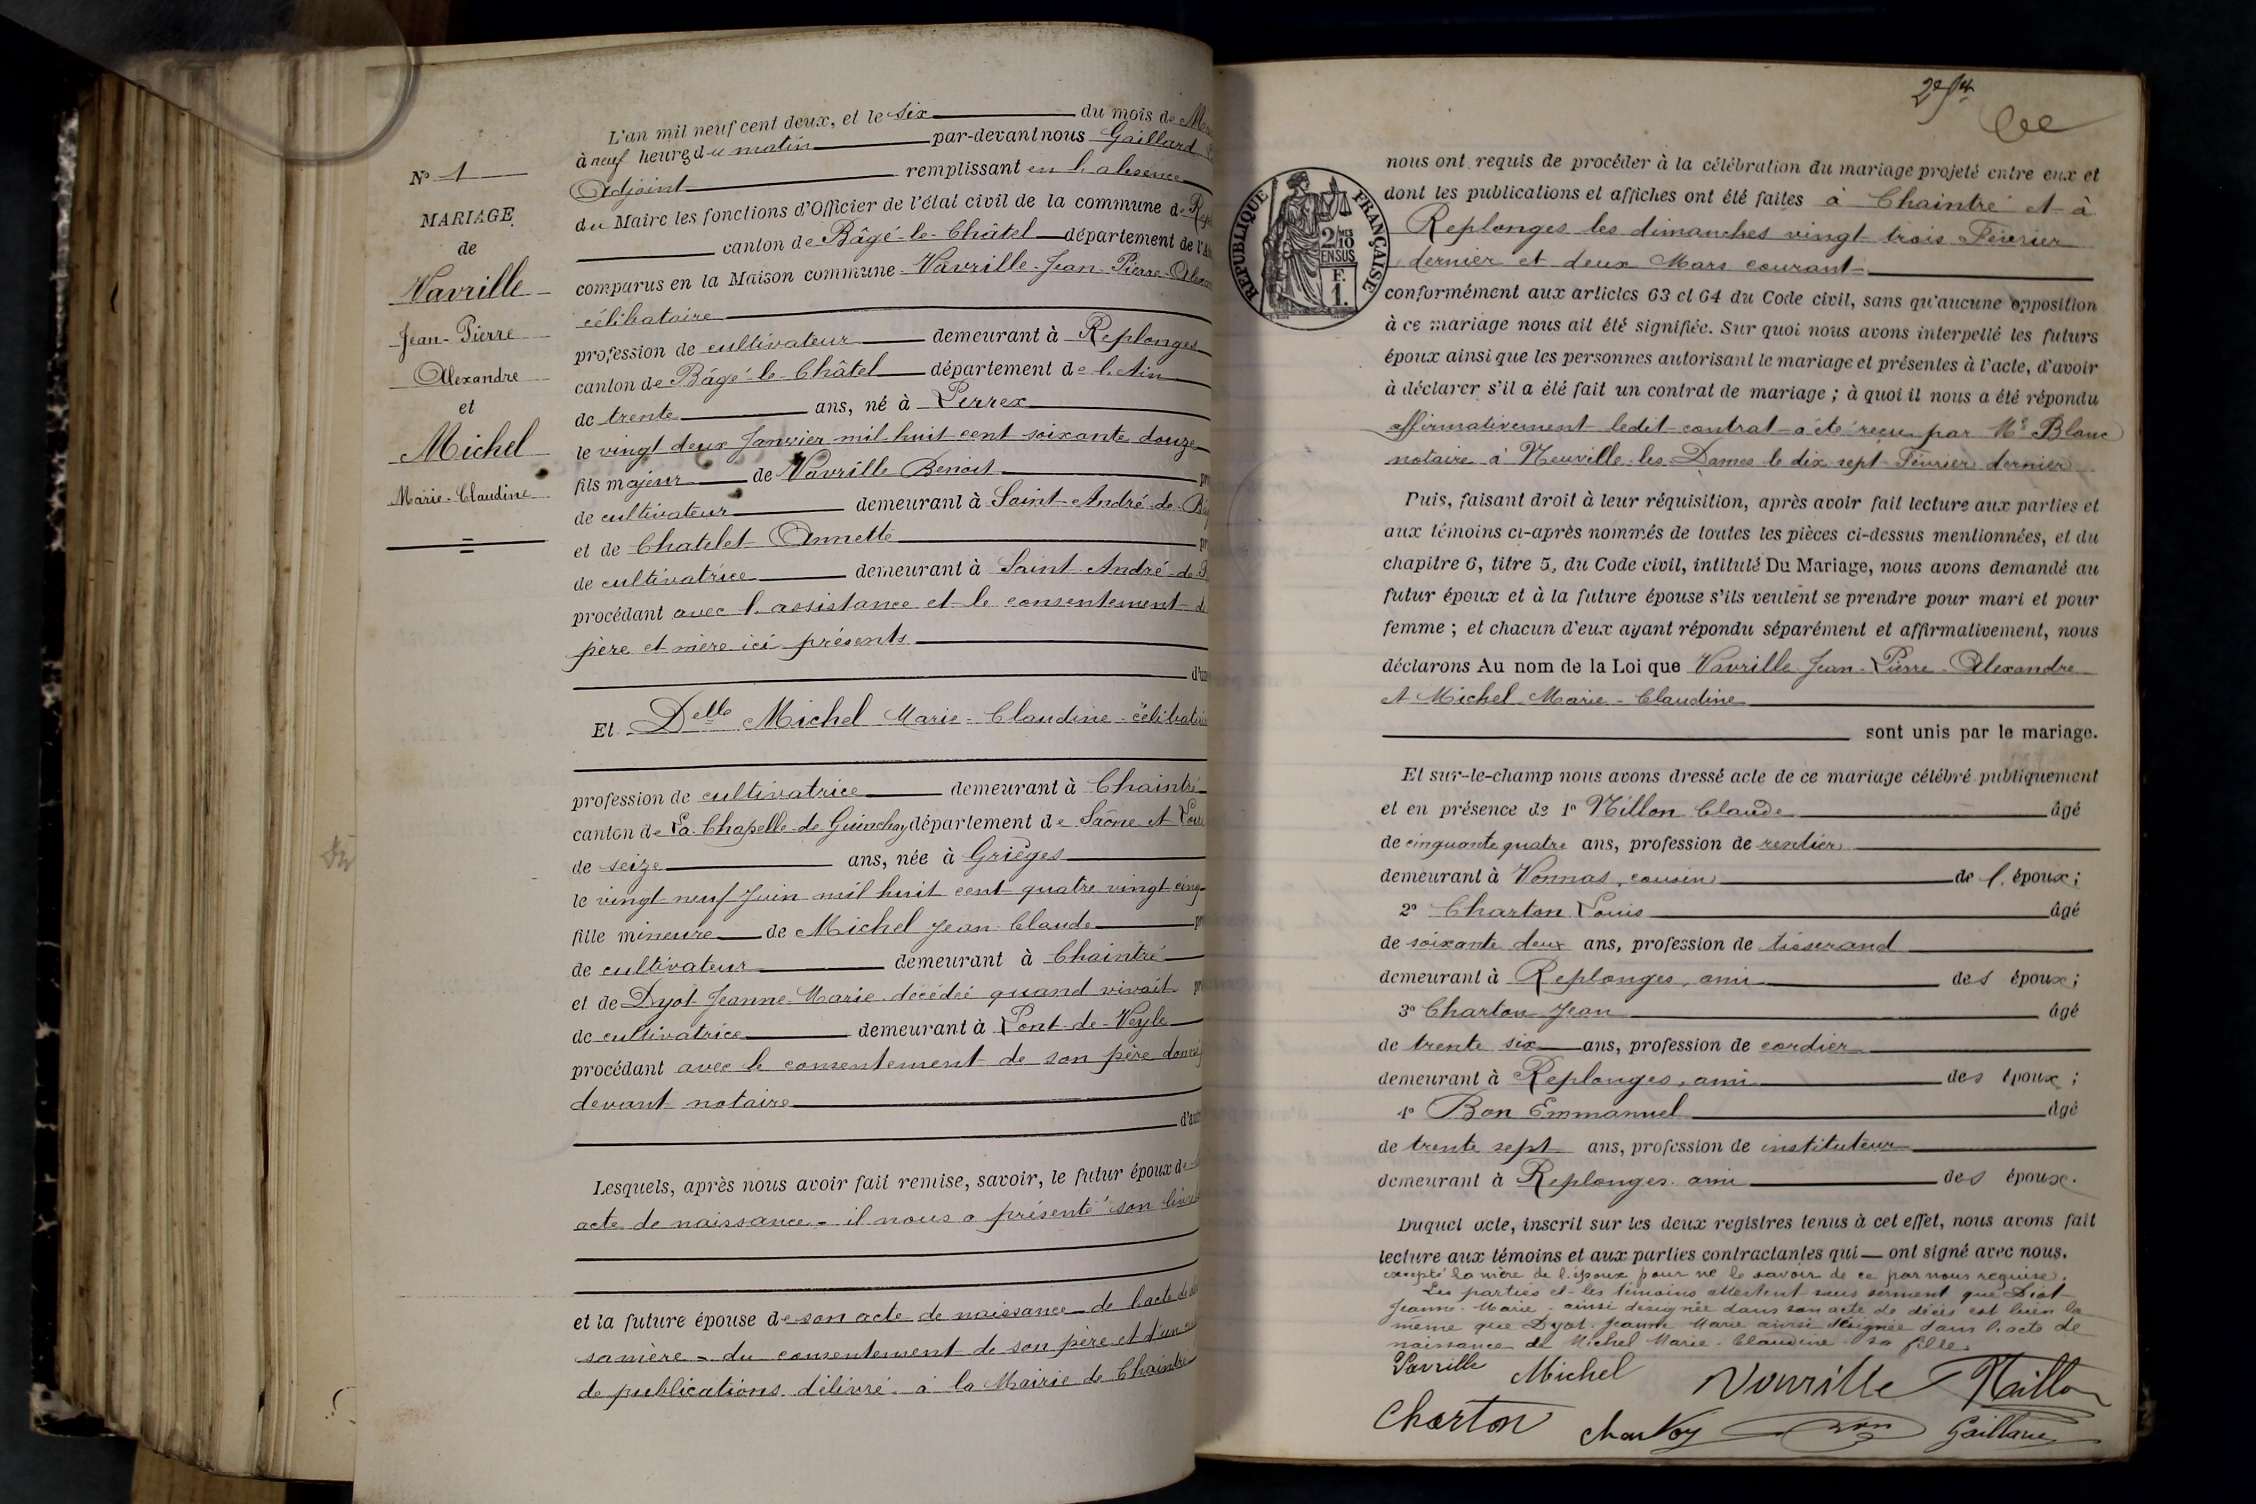 N° 1
MARIAGE
de
Vavrille
Jean-Pierre
Alexandre
et
Michel
Marie-Claudine
L'an mil neuf cent deux, et le six du mois de
à neuf heures du matin par-devant nous Gaillard
Adjoint remplissant en l'absence
du Maire les fonctions d'Officier de l'état civil de la commune de
canton de Bâgé-le-Châtel département de l'
comparus en la Maison commune Vavrille Jean-Pierre-
célibataire
profession de cultivateur demeurant à Replonges
canton de Bâgé-le-Châtel département de l'Ain
de trente ans, né à Perrex
le vingt deux Janvier mil huit cent soixante douze
fils majeur de Vavrille Benoit
de cultivateur demeurant à Saint-André-de-
et de Chatelet Annette
de cultivatrice demeurant à Saint-André-de-
procédant avec l'assistance et le consentement de
père et mère ici présents
Et Delle Michel Marie-Claudine
profession de cultivatrice demeurant à Chaintré
canton de La Chapelle-de-Guinchay département de Saône et Loire
de seize ans, née à Grièges
le vingt-neuf Juin mil huit cent quatre vingt cinq
fille mineure de Michel Jean-Claude
de cultivateur demeurant à Chaintré
et de Dyot Jeanne-Marie décédée quand vivait
de cultivatrice demeurant à Pont-de-Veyle
procédant avec le consentement de son père donné
devant notaire
Lesquels, après nous avoir fait remise, savoir, le futur époux de
acte de naissance - il nous a présenté son
et la future épouse de son acte de naissance - de l'acte de
sa mère - du consentement de son père et d'un
de publications délivré à la Mairie de Chaintré
2e
RÉPUBLIQUE FRANÇAISE
2/10
EN SUS
F.
1.
nous ont requis de procéder à la célébration du mariage projeté entre eux et
dont les publications et affiches ont été faites à Chaintré et à
Replonges les dimanches vingt trois Février
dernier et deux Mars courant
conformément aux articles 63 et 64 du Code civil, sans qu'aucune opposition
à ce mariage nous ait été signifiée. Sur quoi nous avons interpellé les futurs
époux ainsi que les personnes autorisant le mariage et présentes à l'acte, d'avoir
à déclarer s'il a été fait un contrat de mariage ; à quoi il nous a été répondu
affirmativement ledit contrat a été reçu par Me Blanc
notaire à Neuville-les-Dames le dix sept Février dernier
Puis, faisant droit à leur réquisition, après avoir fait lecture aux parties et
aux témoins ci-après nommés de toutes les pièces ci-dessus mentionnées, et du
chapitre 6, titre 5, du Code civil, intitulé Du Mariage, nous avons demandé au
futur époux et à la future épouse s'ils veulent se prendre pour mari et pour
femme ; et chacun d'eux ayant répondu séparément et affirmativement, nous
déclarons Au nom de la Loi que Vavrille Jean-Pierre-Alexandre
et Michel Marie-Claudine
sont unis par le mariage.
Et sur-le-champ nous avons dressé acte de ce mariage célébré publiquement
et en présence de 1° Millon Claude âgé
de cinquante quatre ans, profession de rentier
demeurant à Vonnas, cousin de l'époux ;
2° Charton Louis âgé
de soixante deux ans, profession de tisserand
demeurant à Replonges, ami des époux ;
3° Charton Jean âgé
de trente six ans, profession de cordier
demeurant à Replonges, ami des époux ;
4° Bon Emmanuel âgé
de trente sept ans, profession de instituteur
demeurant à Replonges ami des époux.
Duquel acte, inscrit sur les deux registres tenus à cet effet, nous avons fait
lecture aux témoins et aux parties contractantes qui ont signé avec nous.
excepté la mère de l'époux pour ne le savoir de ce par nous requise.
Les parties et les témoins attestent sous serment que Diot
Jeanne-Marie ainsi désignée dans son acte de décès est bien la
même que Dyot Jeanne Marie ainsi désignée dans l'acte de
naissance de Michel Marie-Claudine sa fille.
Vavrille Michel Vavrille
Charton Bon Gaillard